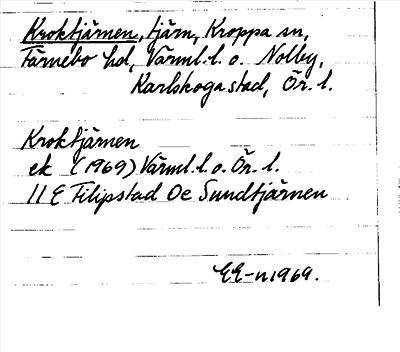 Kroktjärnen, tjärn, Kroppa sn,
Färnebo hd, Värml. l. o. Nolby,
Karlskoga stad, Ör. l.
Kroktjärnen
ek (1969) Värml. l. o. Ör. l.
11 E Filipstad 0e Sundtjärnen
EE-n 1969.